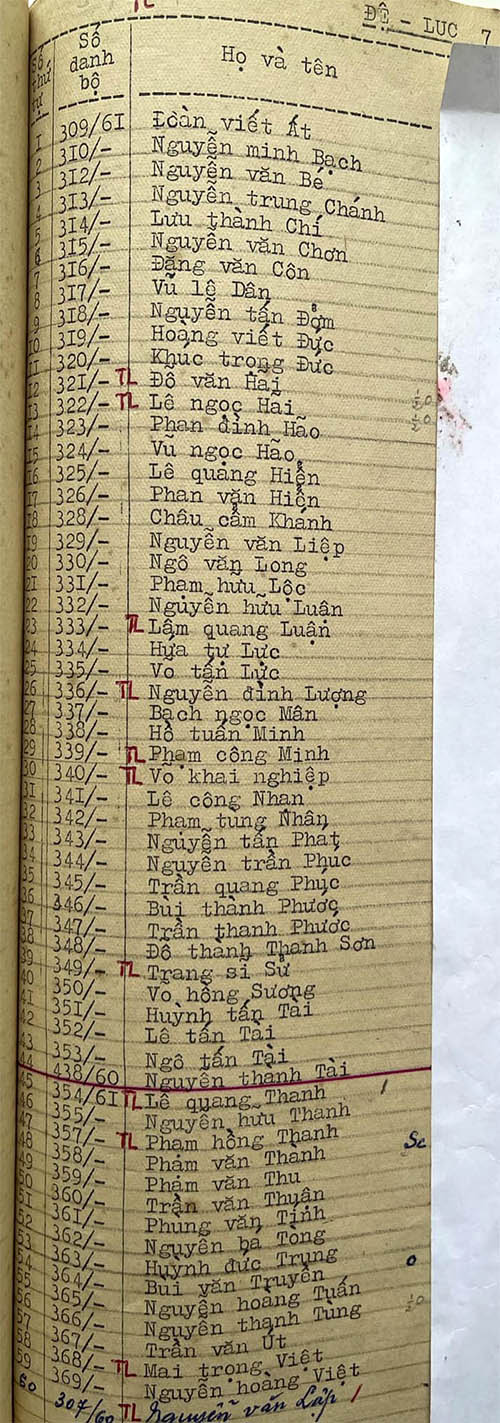 TL
ĐỆ - LỤC 7
Số thứ tự Số danh bộ Họ và tên
1 309/61 Đoàn viết Át
2 310/- Nguyễn minh Bạch
3 312/- Nguyễn văn Bé
4 313/- Nguyễn trung Chánh
5 314/- Lưu thành Chí
6 315/- Nguyễn văn Chơn
7 316/- Đặng văn Côn
8 317/- Vũ lê Dân
9 318/- Nguyễn tấn Đởm
10 319/- Hoàng viết Đức
11 320/- Khúc trọng Đức
12 321/- TL Đỗ văn Hải
13 322/- TL Lê ngọc Hải
14 323/- Phan đình Hão
15 324/- Vũ ngọc Hão
16 325/- Lê quảng Hiển
17 326/- Phan văn Hiển
18 328/- Châu cẩm Khánh
19 329/- Nguyễn văn Liệp
20 330/- Ngô văn Long
21 331/- Phạm hữu Lộc
22 332/- Nguyễn hữu Luận
23 333/- TL Lâm quang Luận
24 334/- Hứa tự Lực
25 335/- Vo tấn Lực
26 336/- TL Nguyễn đình Lượng
27 337/- Bạch ngọc Mân
28 338/- Hồ tuấn Minh
29 339/- TL Phạm công Minh
30 340/- TL Vo khai nghiệp
31 341/- Lê công Nhan
32 342/- Phạm tùng Nhân
33 343/- Nguyễn tấn Phat
34 344/- Nguyễn trần Phúc
35 345/- Trần quang Phúc
36 346/- Bùi thành Phước
37 347/- Trần thanh Phước
38 348/- Đỗ thành Thanh Sơn
39 349/- TL Trang sĩ Sử
40 350/- Võ hồng Sương
41 351/- Huỳnh tấn Tài
42 352/- Lê tấn Tài
43 353/- Ngô tấn Tài
44 438/60 Nguyễn thanh Tài
45 354/61 TL Lê quang Thanh
46 355/- Nguyễn hữu Thanh
47 357/- TL Phạm hồng Thanh
48 358/- Phạm văn Thành Sc
49 359/- Phạm văn Thu
50 360/- Trần văn Thuận
51 361/- Phung văn Tịnh
52 362/- Nguyễn bá Tong
53 363/- Huỳnh đức Trung
54 364/- Bùi văn Truyền
55 365/- Nguyễn hoàng Tuấn
56 366/- Nguyễn thanh Tùng
57 367/- Trần văn Út
58 368/- TL Mai trọng Việt
59 369/- Nguyễn hoàng Việt
60 307/60 TL Nguyễn văn Lắp